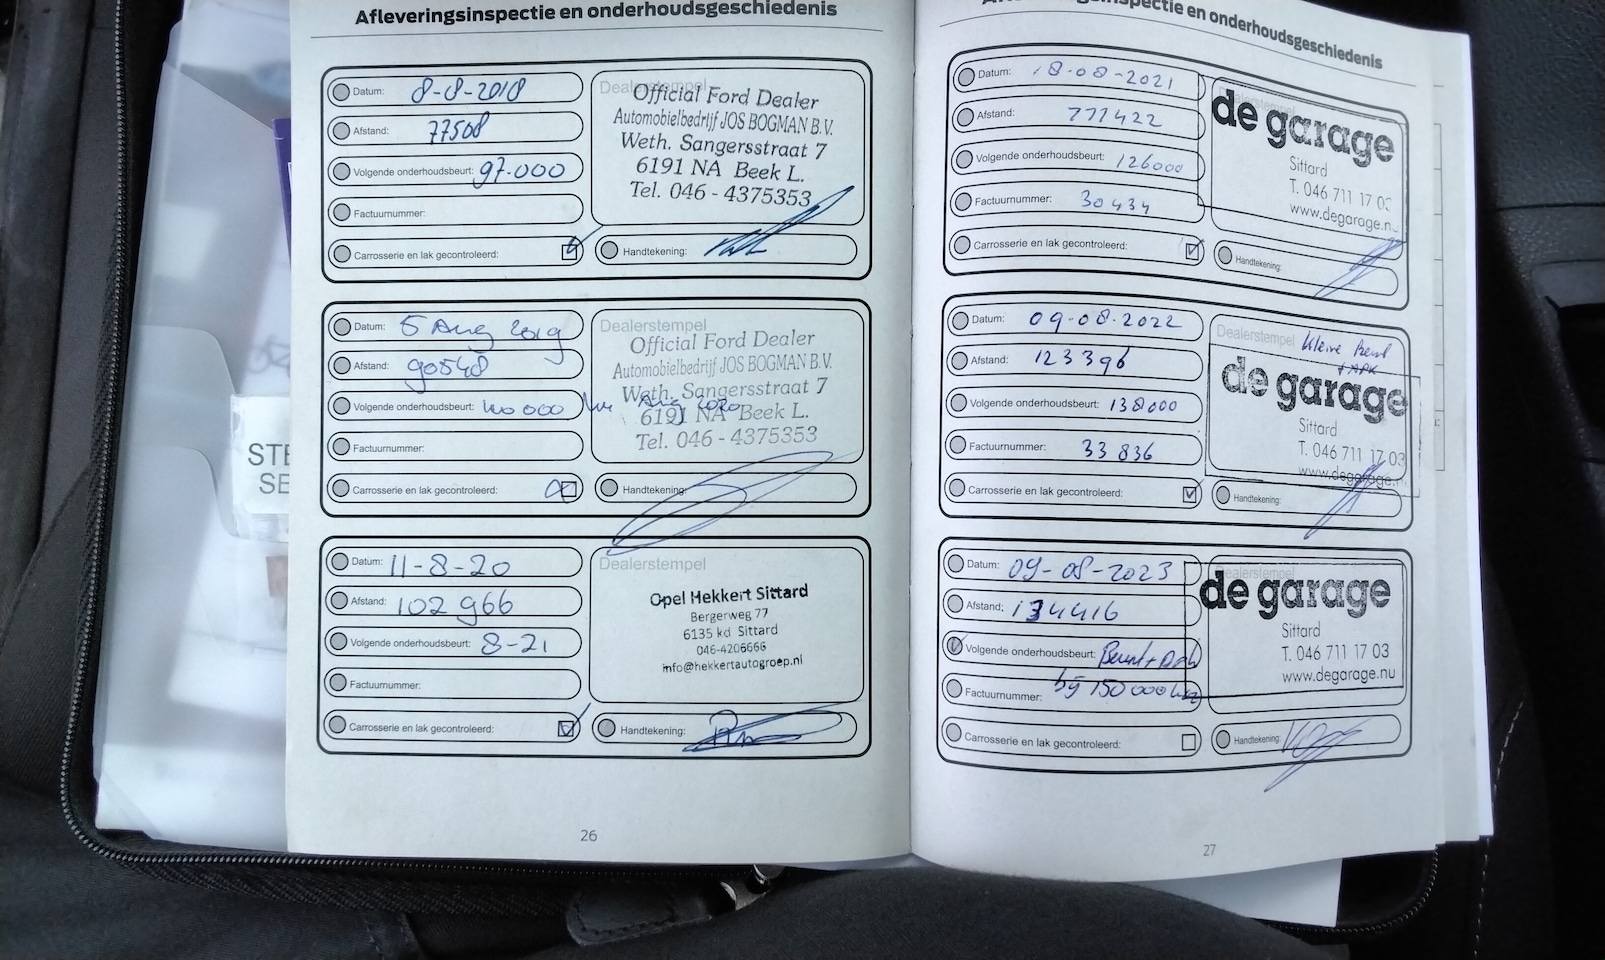 Afleveringsinspectie en onderhoudsgeschiedenis
Datum: 8-8-2018
Afstand: 77508
Volgende onderhoudsbeurt: 97.000
Factuurnummer:
Carrosserie en lak gecontroleerd:
Dealerstempel
Official Ford Dealer
Automobielbedrijf JOS BOGMAN B.V.
Weth. Sangersstraat 7
6191 NA Beek L.
Tel. 046 - 4375353
Handtekening:
Datum: 5 Aug 2019
Afstand: 90548
Volgende onderhoudsbeurt: Aug 2020
Factuurnummer:
Carrosserie en lak gecontroleerd:
Dealerstempel
Official Ford Dealer
Automobielbedrijf JOS BOGMAN B.V.
Weth. Sangersstraat 7
6191 NA Beek L.
Tel. 046 - 4375353
Handtekening:
Datum: 11-8-20
Afstand: 102966
Volgende onderhoudsbeurt: 8-21
Factuurnummer:
Carrosserie en lak gecontroleerd:
Dealerstempel
Opel Hekkert Sittard
Bergerweg 77
6135 kd Sittard
046-4206666
info@hekkertautogroep.nl
Handtekening:
26
Afleveringsinspectie en onderhoudsgeschiedenis
Datum: 18-08-2021
Afstand:
Volgende onderhoudsbeurt: 126000
Factuurnummer: 30434
Carrosserie en lak gecontroleerd:
de garage
Sittard
T. 046 711 17 03
www.degarage.nu
Handtekening:
Datum: 09-08-2022
Afstand: 123396
Volgende onderhoudsbeurt: 138000
Factuurnummer: 33836
Carrosserie en lak gecontroleerd:
Dealerstempel Kleine Beurt
+ APK
de garage
Sittard
T. 046 711 17 03
www.degarage.nu
Handtekening:
Datum: 09-08-2023
Afstand: 134416
Volgende onderhoudsbeurt: Beurt +
Factuurnummer: bij 150000
Carrosserie en lak gecontroleerd:
Dealerstempel
de garage
Sittard
T. 046 711 17 03
www.degarage.nu
Handtekening:
27
STE
SE